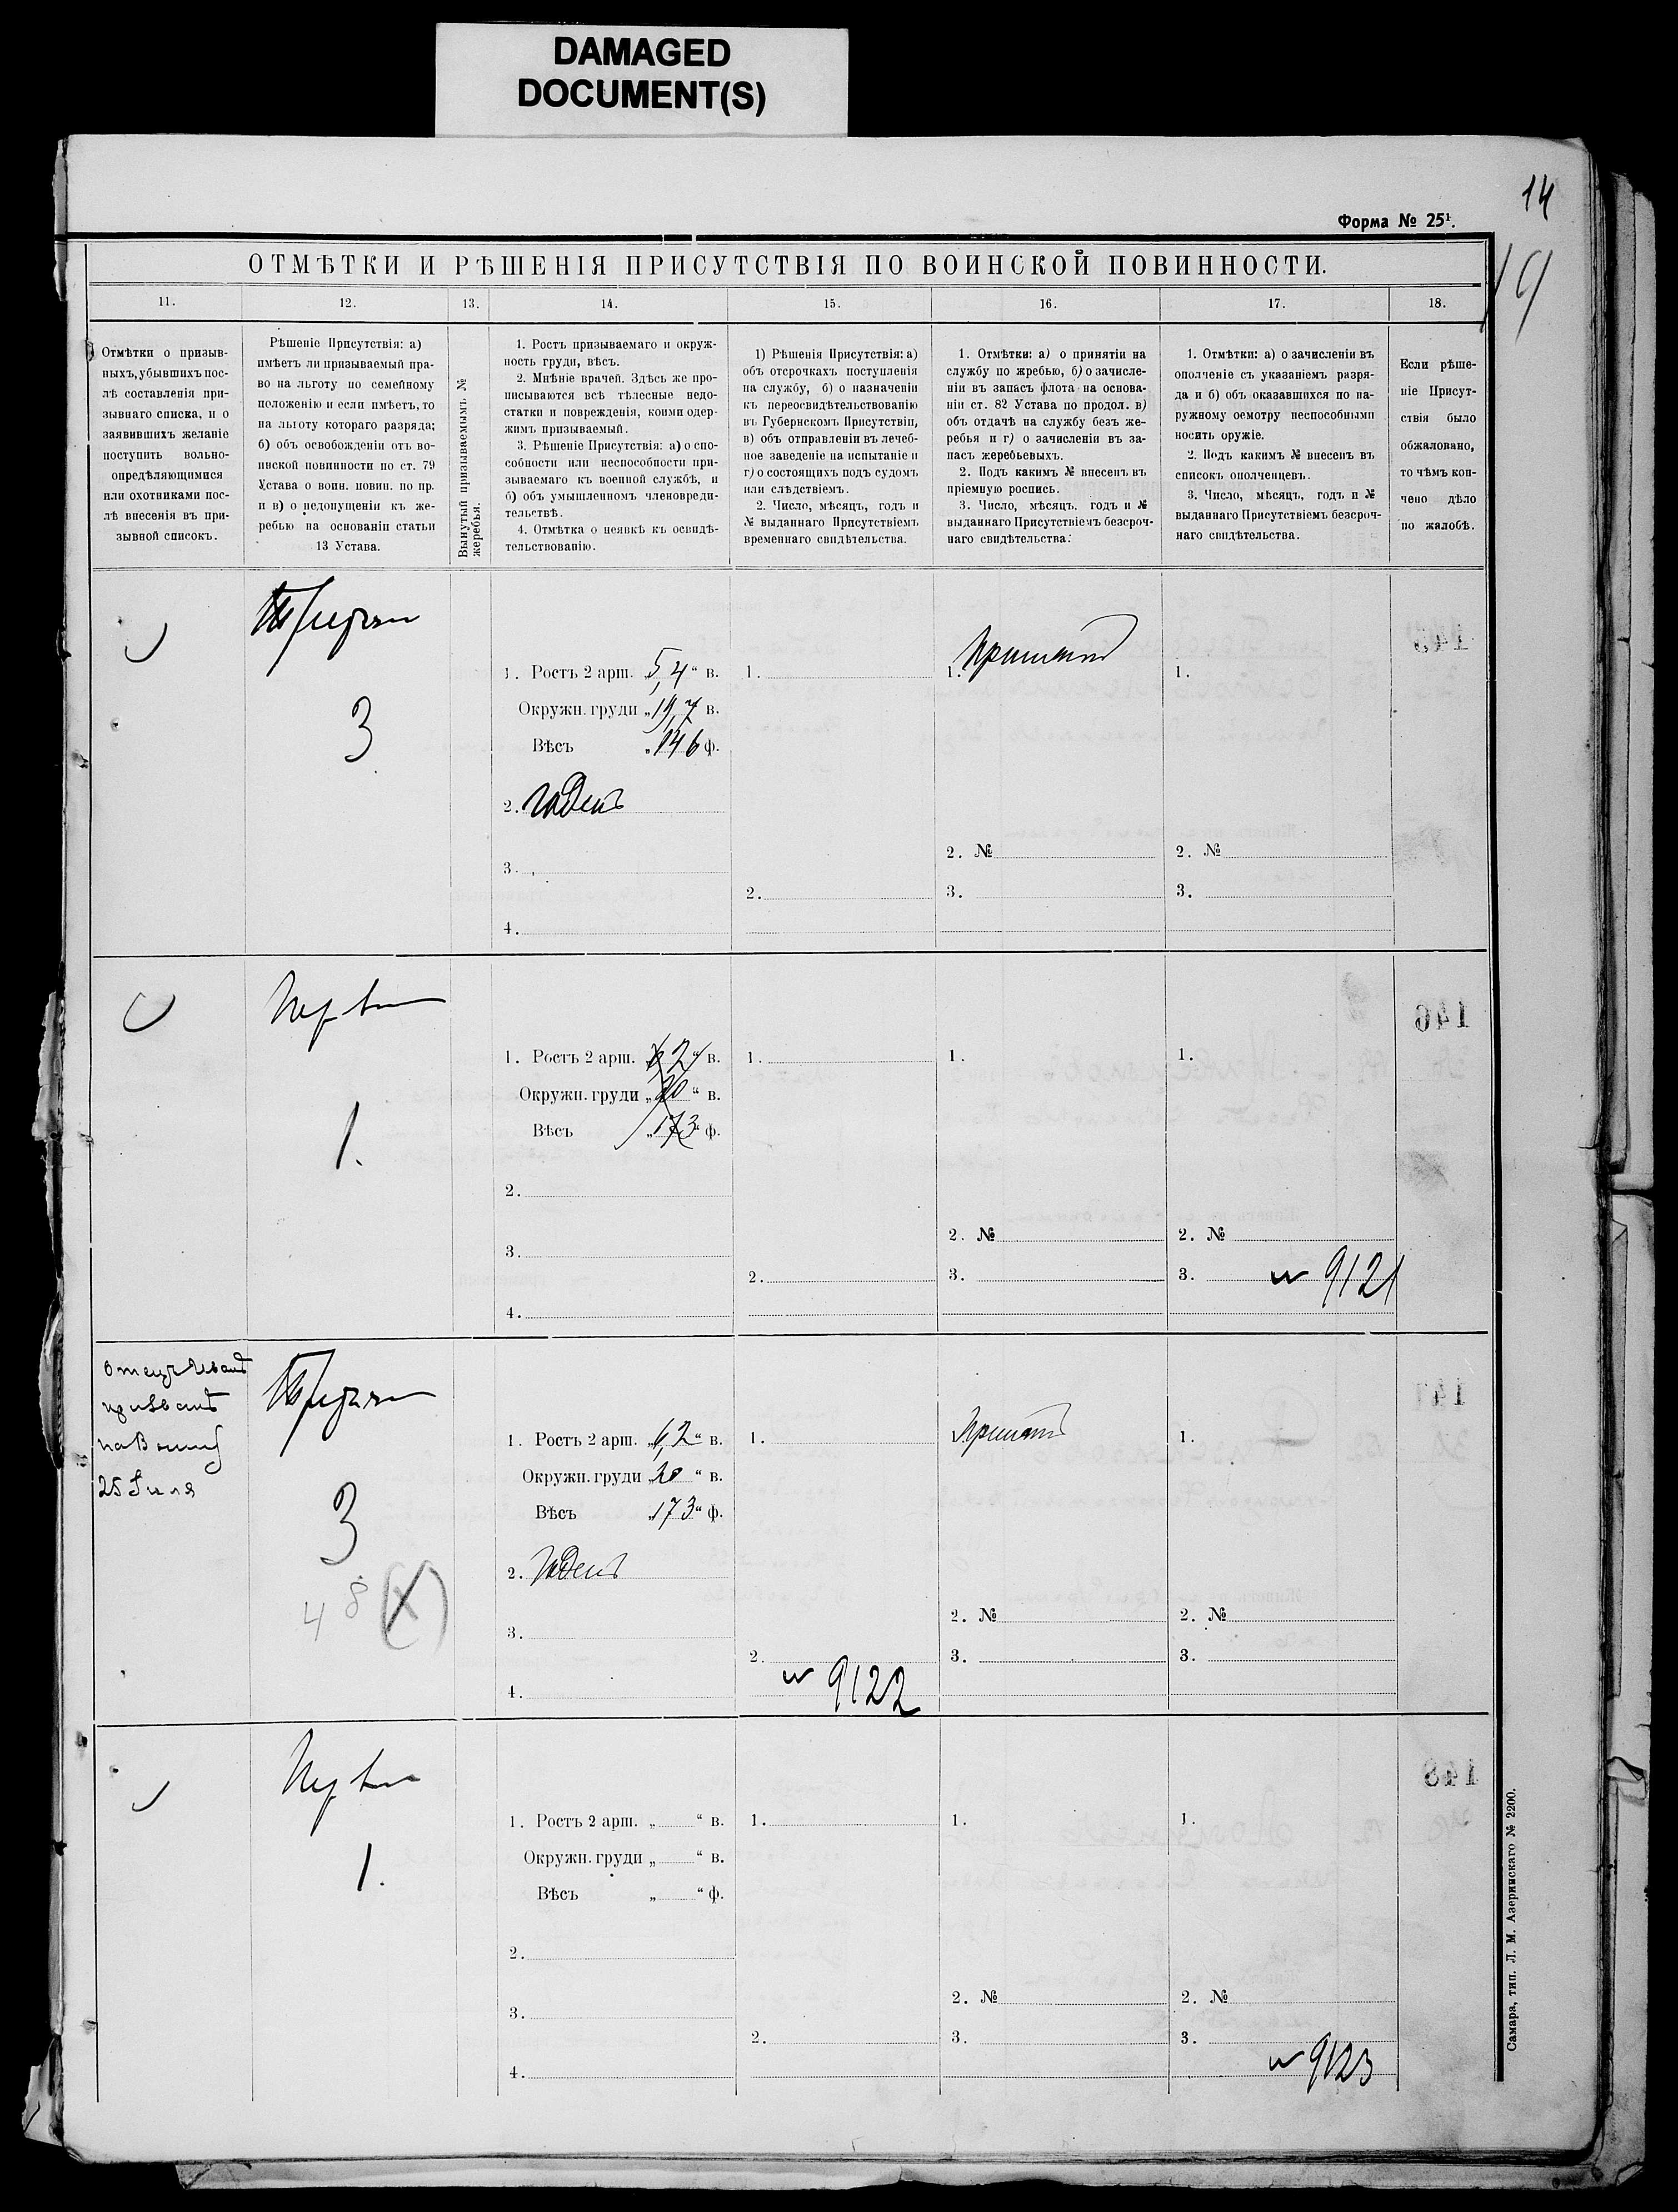 DAMAGED
DOCUMENT(S)
14
Форма № 25¹.
19
ОТМѢТКИ И РѢШЕНІЯ ПРИСУТСТВІЯ ПО ВОИНСКОЙ ПОВИННОСТИ.
11.
12.
13.
14.
15.
16.
17.
18.
Отмѣтки о призыв-
ныхъ, убывшихъ пос-
лѣ составленія при-
зывнаго списка, и о
заявившихъ желаніе
поступить вольно-
опредѣляющимися
или охотниками пос-
лѣ внесенія въ при-
зывной списокъ.
Рѣшеніе Присутствія: а)
имѣетъ ли призываемый пра-
во на льготу по семейному
положенію и если имѣетъ, то
на льготу котораго разряда;
б) объ освобожденіи отъ во-
инской повинности по ст. 79
Устава о воин. повин. по пр.
и в) о недопущеніи къ же-
ребью на основаніи статьи
13 Устава.
Вынутый призываемымъ №
жеребья.
1. Ростъ призываемаго и окруж-
ность груди, вѣсъ.
2. Мнѣніе врачей. Здѣсь же про-
писываются всѣ тѣлесные недо-
статки и поврежденія, коими одер-
жимъ призываемый.
3. Рѣшеніе Присутствія: а) о спо-
собности или неспособности при-
зываемаго къ военной службѣ, и
б) объ умышленномъ членовреди-
тельствѣ.
4. Отмѣтка о неявкѣ къ освидѣ-
тельствованію.
1) Рѣшенія Присутствія: а)
объ отсрочкахъ поступленія
на службу, б) о назначеніи
къ переосвидѣтельствованію
въ Губернскомъ Присутствіи,
в) объ отправленіи въ лечеб-
ное заведеніе на испытаніе и
г) о состоящихъ подъ судомъ
или слѣдствіемъ.
2. Число, мѣсяцъ, годъ и
№ выданнаго Присутствіемъ
временнаго свидѣтельства.
1. Отмѣтки: а) о принятіи на
службу по жребью, б) о зачисле-
ніи въ запасъ флота на основа-
ніи ст. 82 Устава по продол. в)
объ отдачѣ на службу безъ же-
ребья и г) о зачисленіи въ за-
пасъ жеребьевыхъ.
2. Подъ какимъ № внесенъ въ
пріемную роспись.
3. Число, мѣсяцъ, годъ и №
выданнаго Присутствіемъ безсроч-
наго свидѣтельства.
1. Отмѣтки: а) о зачисленіи въ
ополченіе съ указаніемъ разря-
да и б) объ оказавшихся по на-
ружному осмотру неспособными
носить оружіе.
2. Подъ какимъ № внесенъ въ
списокъ ополченцевъ.
3. Число, мѣсяцъ, годъ и №
выданнаго Присутствіемъ безсроч-
наго свидѣтельства.
Если рѣше-
ніе Присут-
ствія было
обжаловано,
то чѣмъ кон-
чено дѣло
по жалобѣ.
3
1. Ростъ 2 арш. „5,4“ в.
Окружн. груди „19,7 в.
Вѣсъ „146 ф.
2. Годенъ
3.
4.
1.
2.
1. Принятъ
2. №
3.
1.
2. №
3.
1.
1. Ростъ 2 арш. „6,2“ в.
Окружн. груди „20“ в.
Вѣсъ „173“ ф.
2.
3.
4.
1.
2.
1.
2. №
3.
1.
2. №
3. № 9121
146
Отецъ Иванъ
призванъ
на войну
25 Іюля
3
4 8 (X)
1. Ростъ 2 арш. „6,2“ в.
Окружн. груди „20“ в.
Вѣсъ „173“ ф.
2. Годенъ
3.
4.
1.
2.
№ 9122
1. Принятъ
2. №
3.
1.
2. №
3.
1.
1. Ростъ 2 арш. „ “ в.
Окружн. груди „ “ в.
Вѣсъ „ “ ф.
2.
3.
4.
1.
2.
1.
2. №
3.
1.
2. №
3.
№ 9123
148
Самара, тип. Л. М. Азеринскаго № 2200.